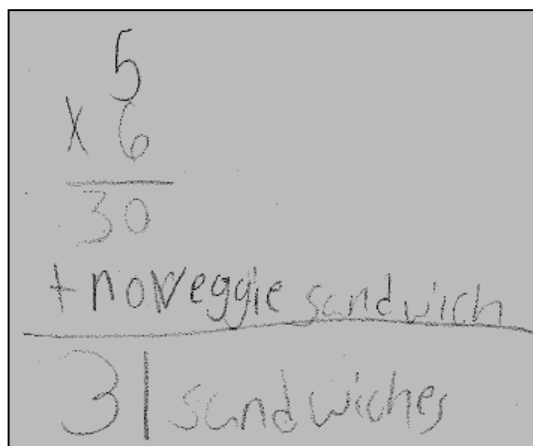 5
x 6
30
+ no veggie sandwich
31 sandwiches